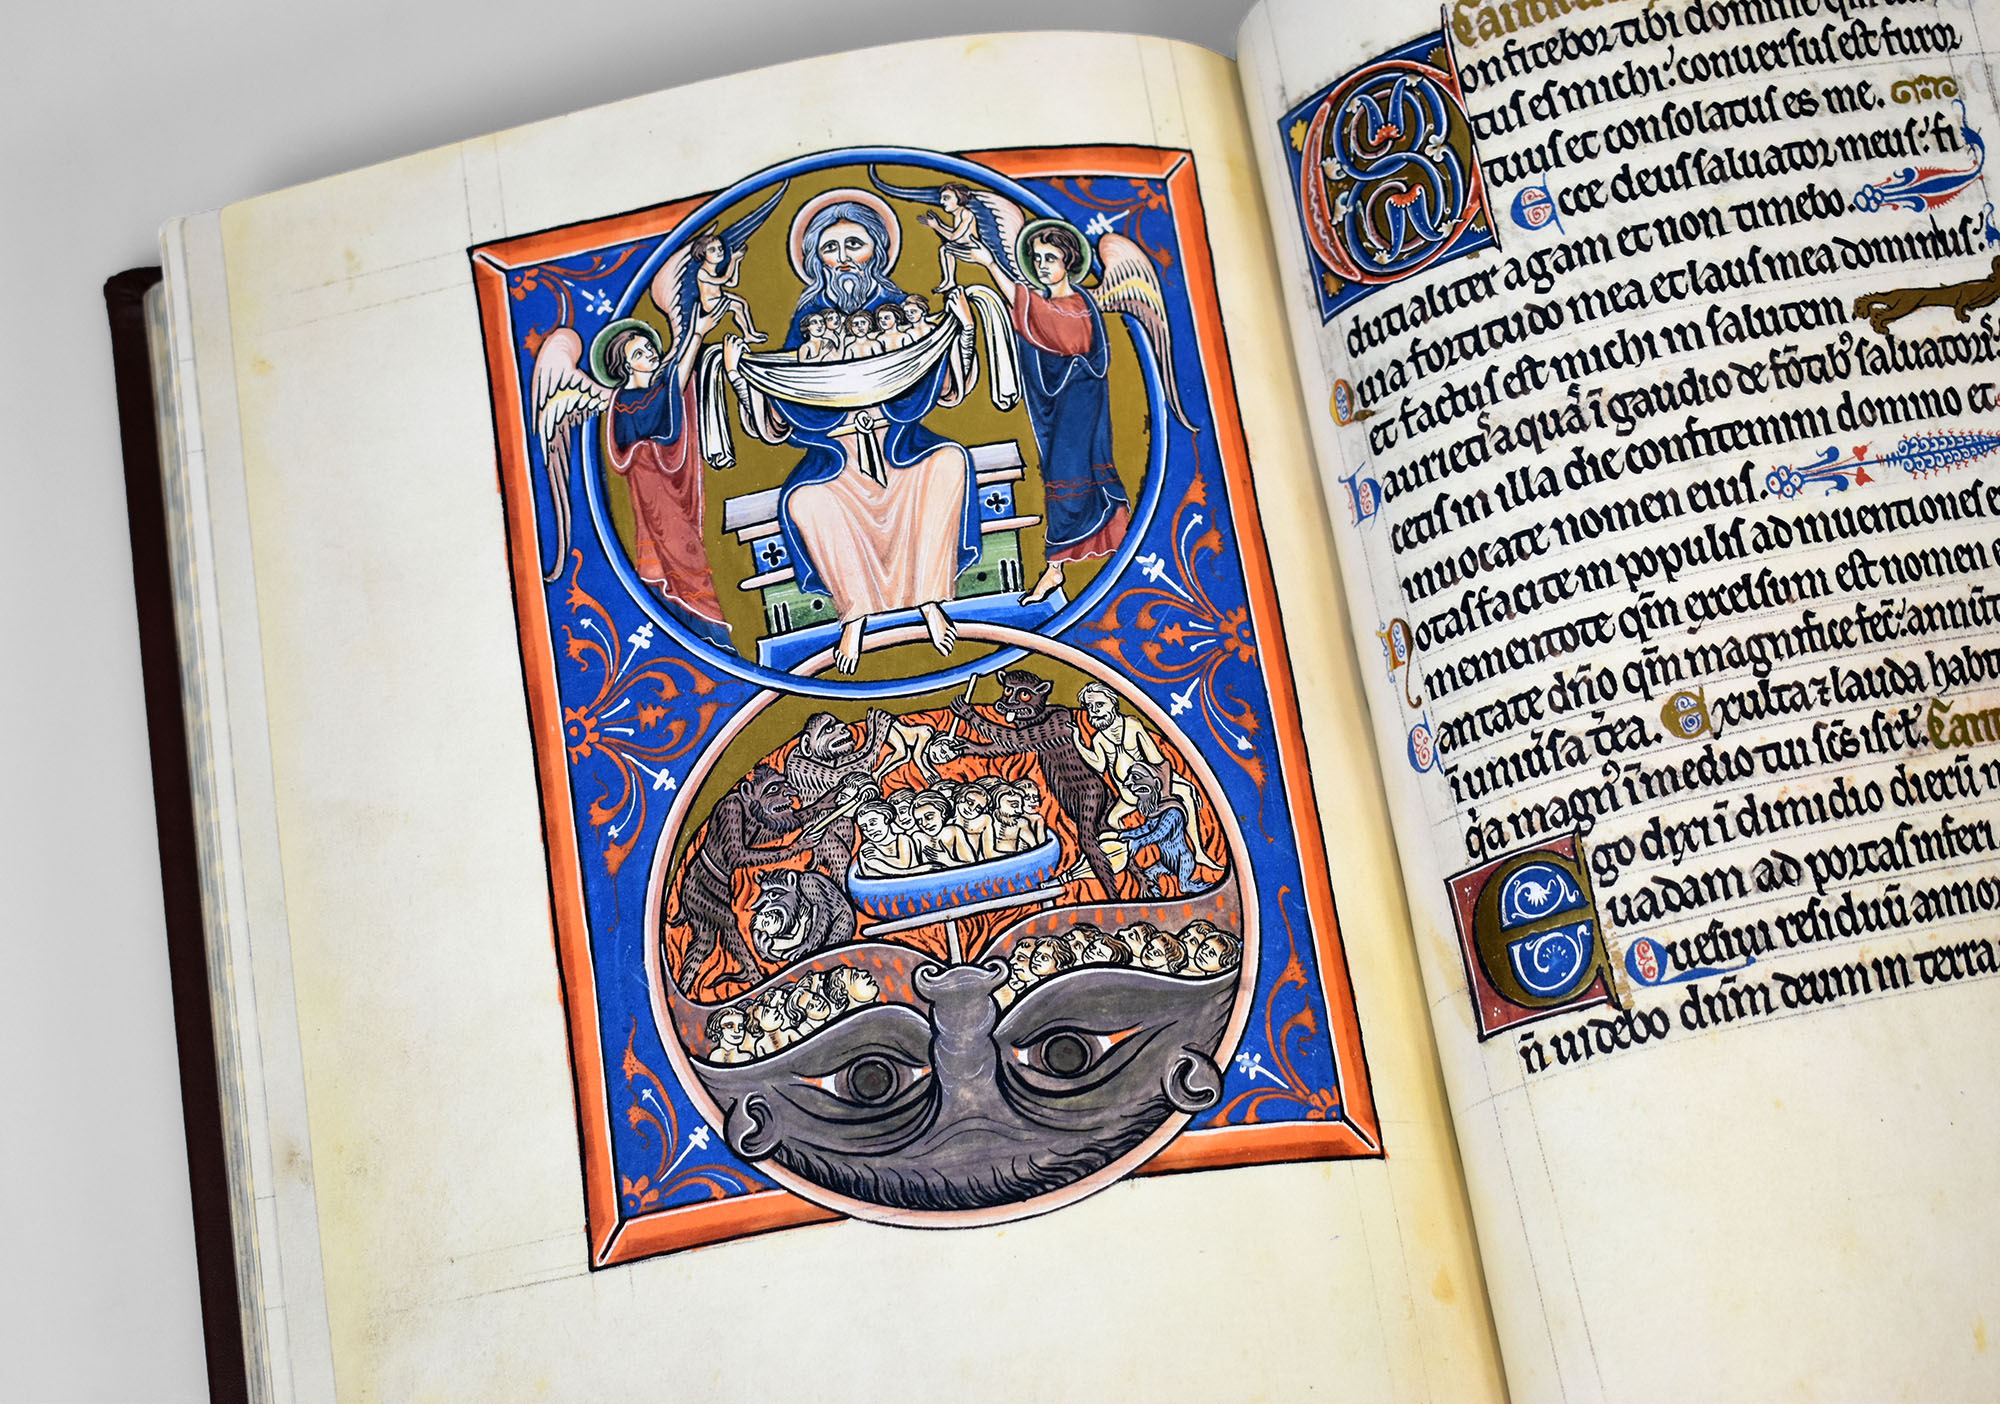 Canticum
Confitebor tibi domine qm ira
tus es michi: conuersus est furor
tuus et consolatus es me.
Ecce deus saluator meus: fi
dutialiter agam et non timebo.
Quia fortitudo mea et laus mea dominus:
et factus est michi in salutem
Haurietis aquas in gaudio de fontibus saluatoris:
et dicetis in illa die confitemini domino et
inuocate nomen eius.
Notas facite in populis ad inuentiones
mementote qm excelsum est nomen
Cantate dno qm magnifice fec: annunt
in uniusa tera. Exulta et lauda habit
qa magnus in medio tui scs isrl. Cant
Ego dixi in dimidio dierum m
uadam ad portas inferi
Quesiui residuum annor
n uidebo dnm deum in terra